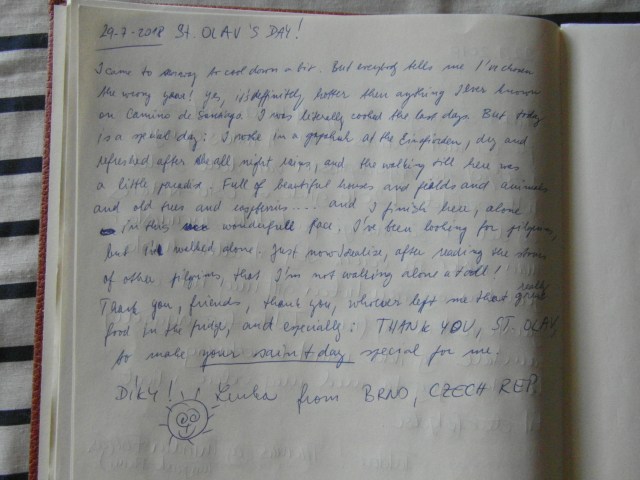 29-7-2018 St. OLAV'S DAY!
I came to norway to cool down a bit. But everybody tells me I've chosen
the wrong year! Yes, it's definitely hotter then anything I ever known
on Camino de Santiago. I was literally cooked the last days. But today
is a special day: I woke in a gapahuk at the, dry and
refreshed after the all night rains, and the walking till here was
a little paradise. Full of beautiful houses and fields and animals
and old trees and .... and I finish here, alone
in this wonderfull place. I've been looking for pilgrims,
but I walked alone. Just now I realise, after reading the stories
of other pilgrims, that I'm not walking alone at all!
Thank you, friends, thank you, whoever left me that really great
food in the fridge, and especially: THANK YOU, ST. OLAV,
to make your saint day special for me.
DÍKY! Lenka from BRNO, CZECH REP.